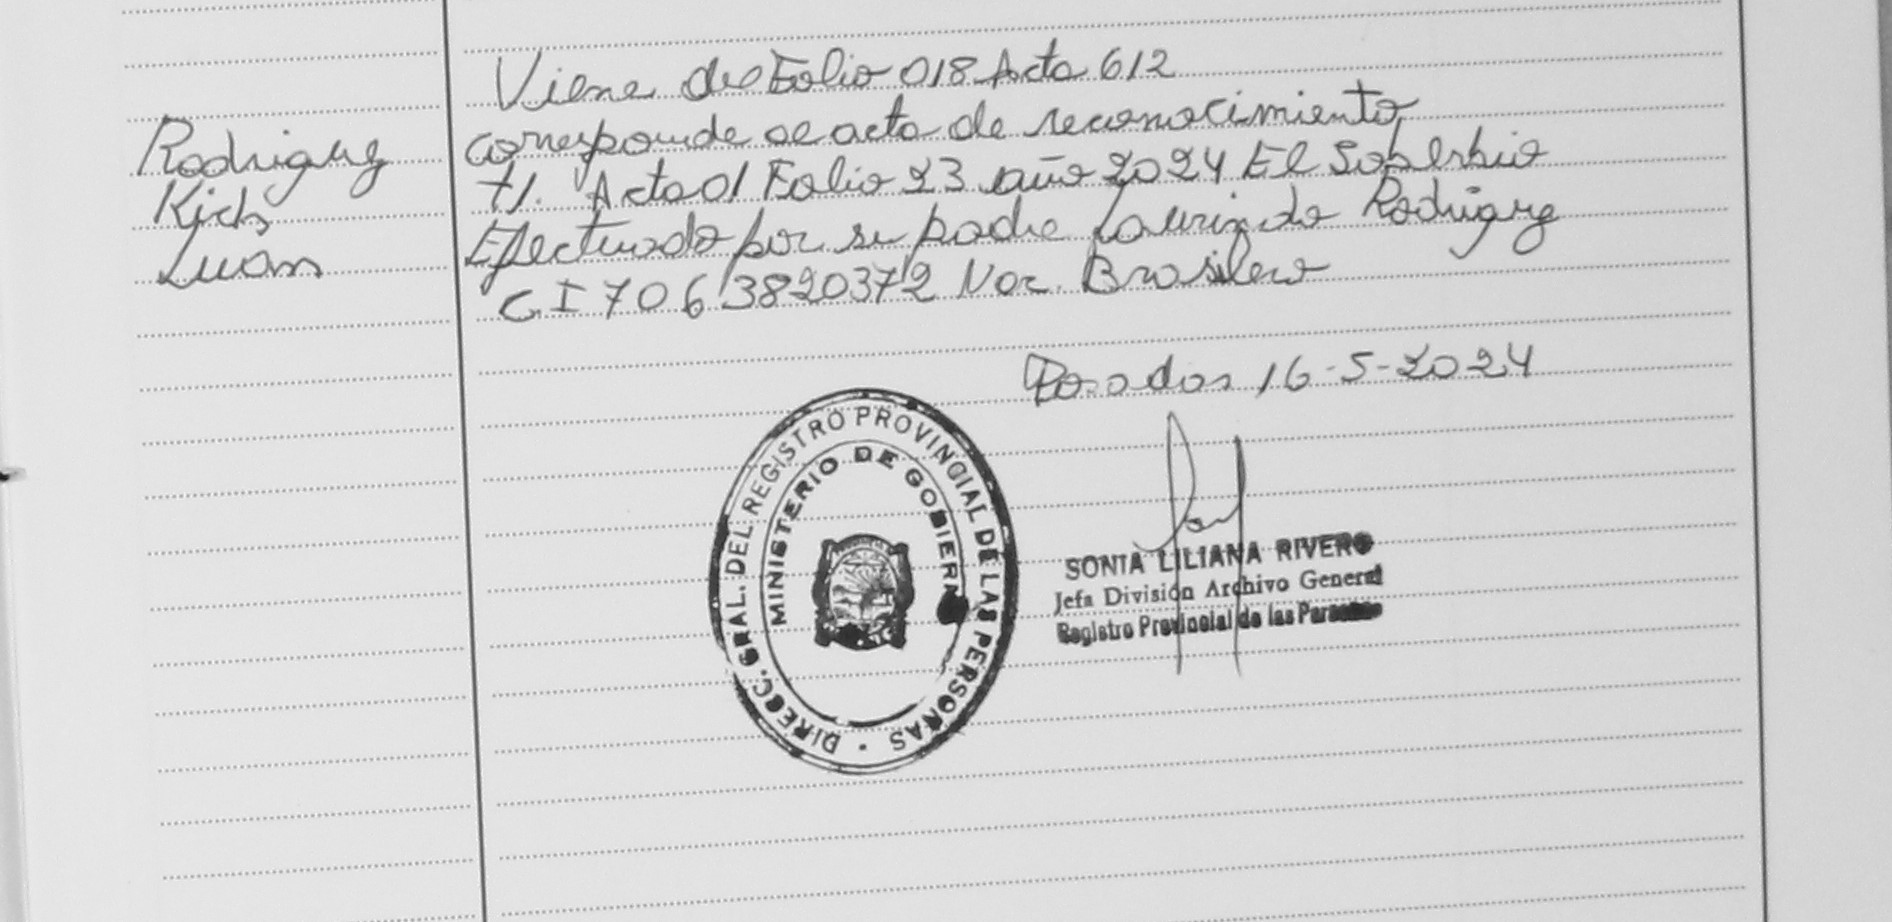 Viene del Folio 018 Acta 612
Rodriguez
Kich
Luan
corresponde al acta de reconocimiento
T1. Acta 01 Folio 23 año 2024 El Soberbio
Efectuado por su padre Laurindo Rodriguez
CI 7063820372 Nac. Brasilero
Posadas 16-5-2024
DIRECC. GRAL. DEL REGISTRO PROVINCIAL DE LAS PERSONAS
MINISTERIO DE GOBIERN
SONIA LILIANA RIVERO
Jefa División Archivo General
Registro Provincial de las Personas